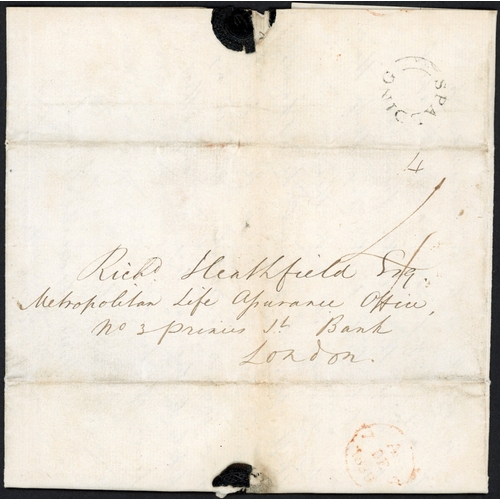 SPALDING
4
Richd. Heathfield Esq
Metropolitan Life Assurance Office,
No 3 Princes St. Bank
London.
7 DE